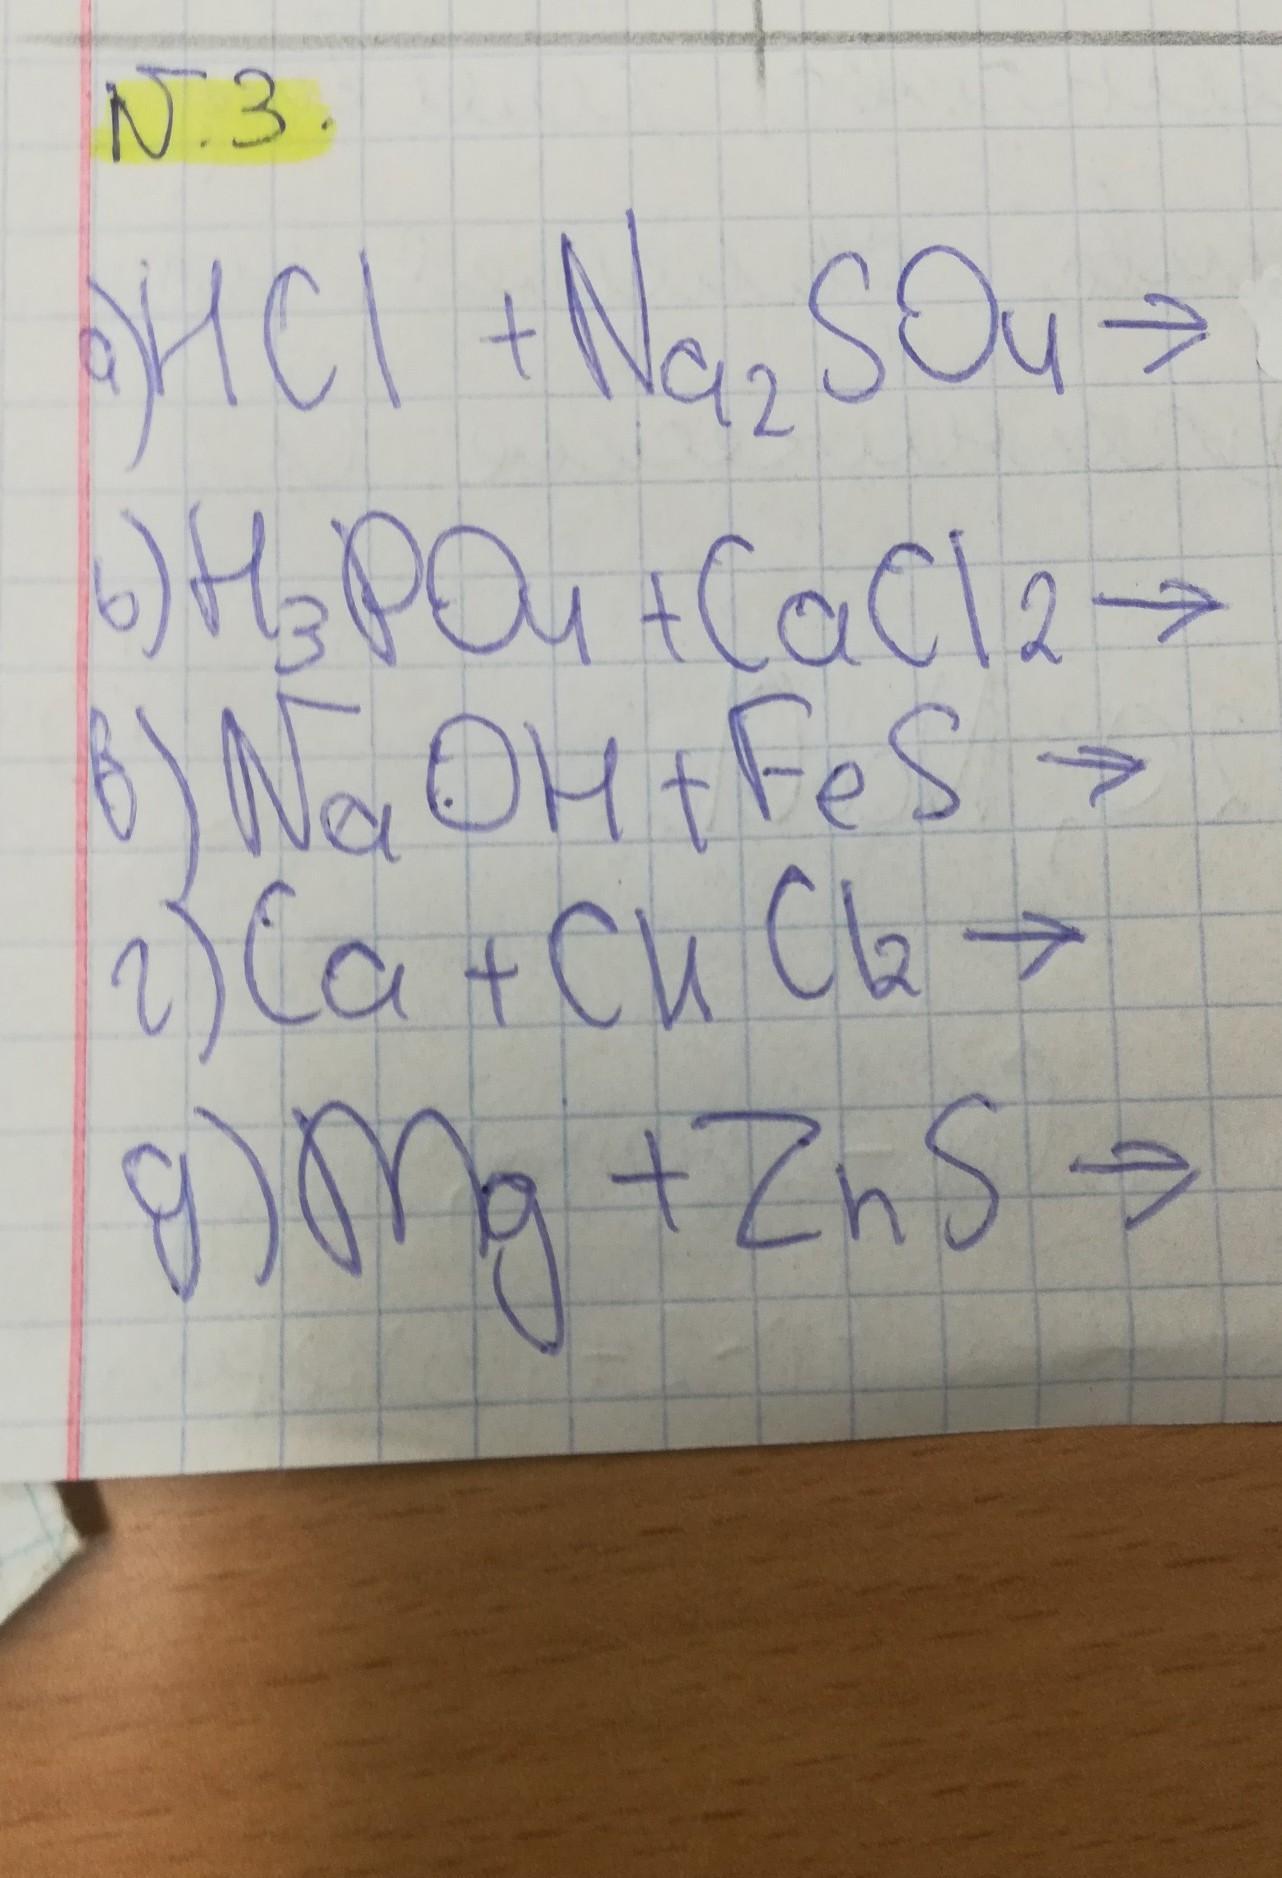 №.3.
а) HCl + Na₂SO₄ →
б) H₃PO₄ + CaCl₂ →
в) NaOH + FeS →
г) Ca + CuCl₂ →
д) Mg + ZnS →